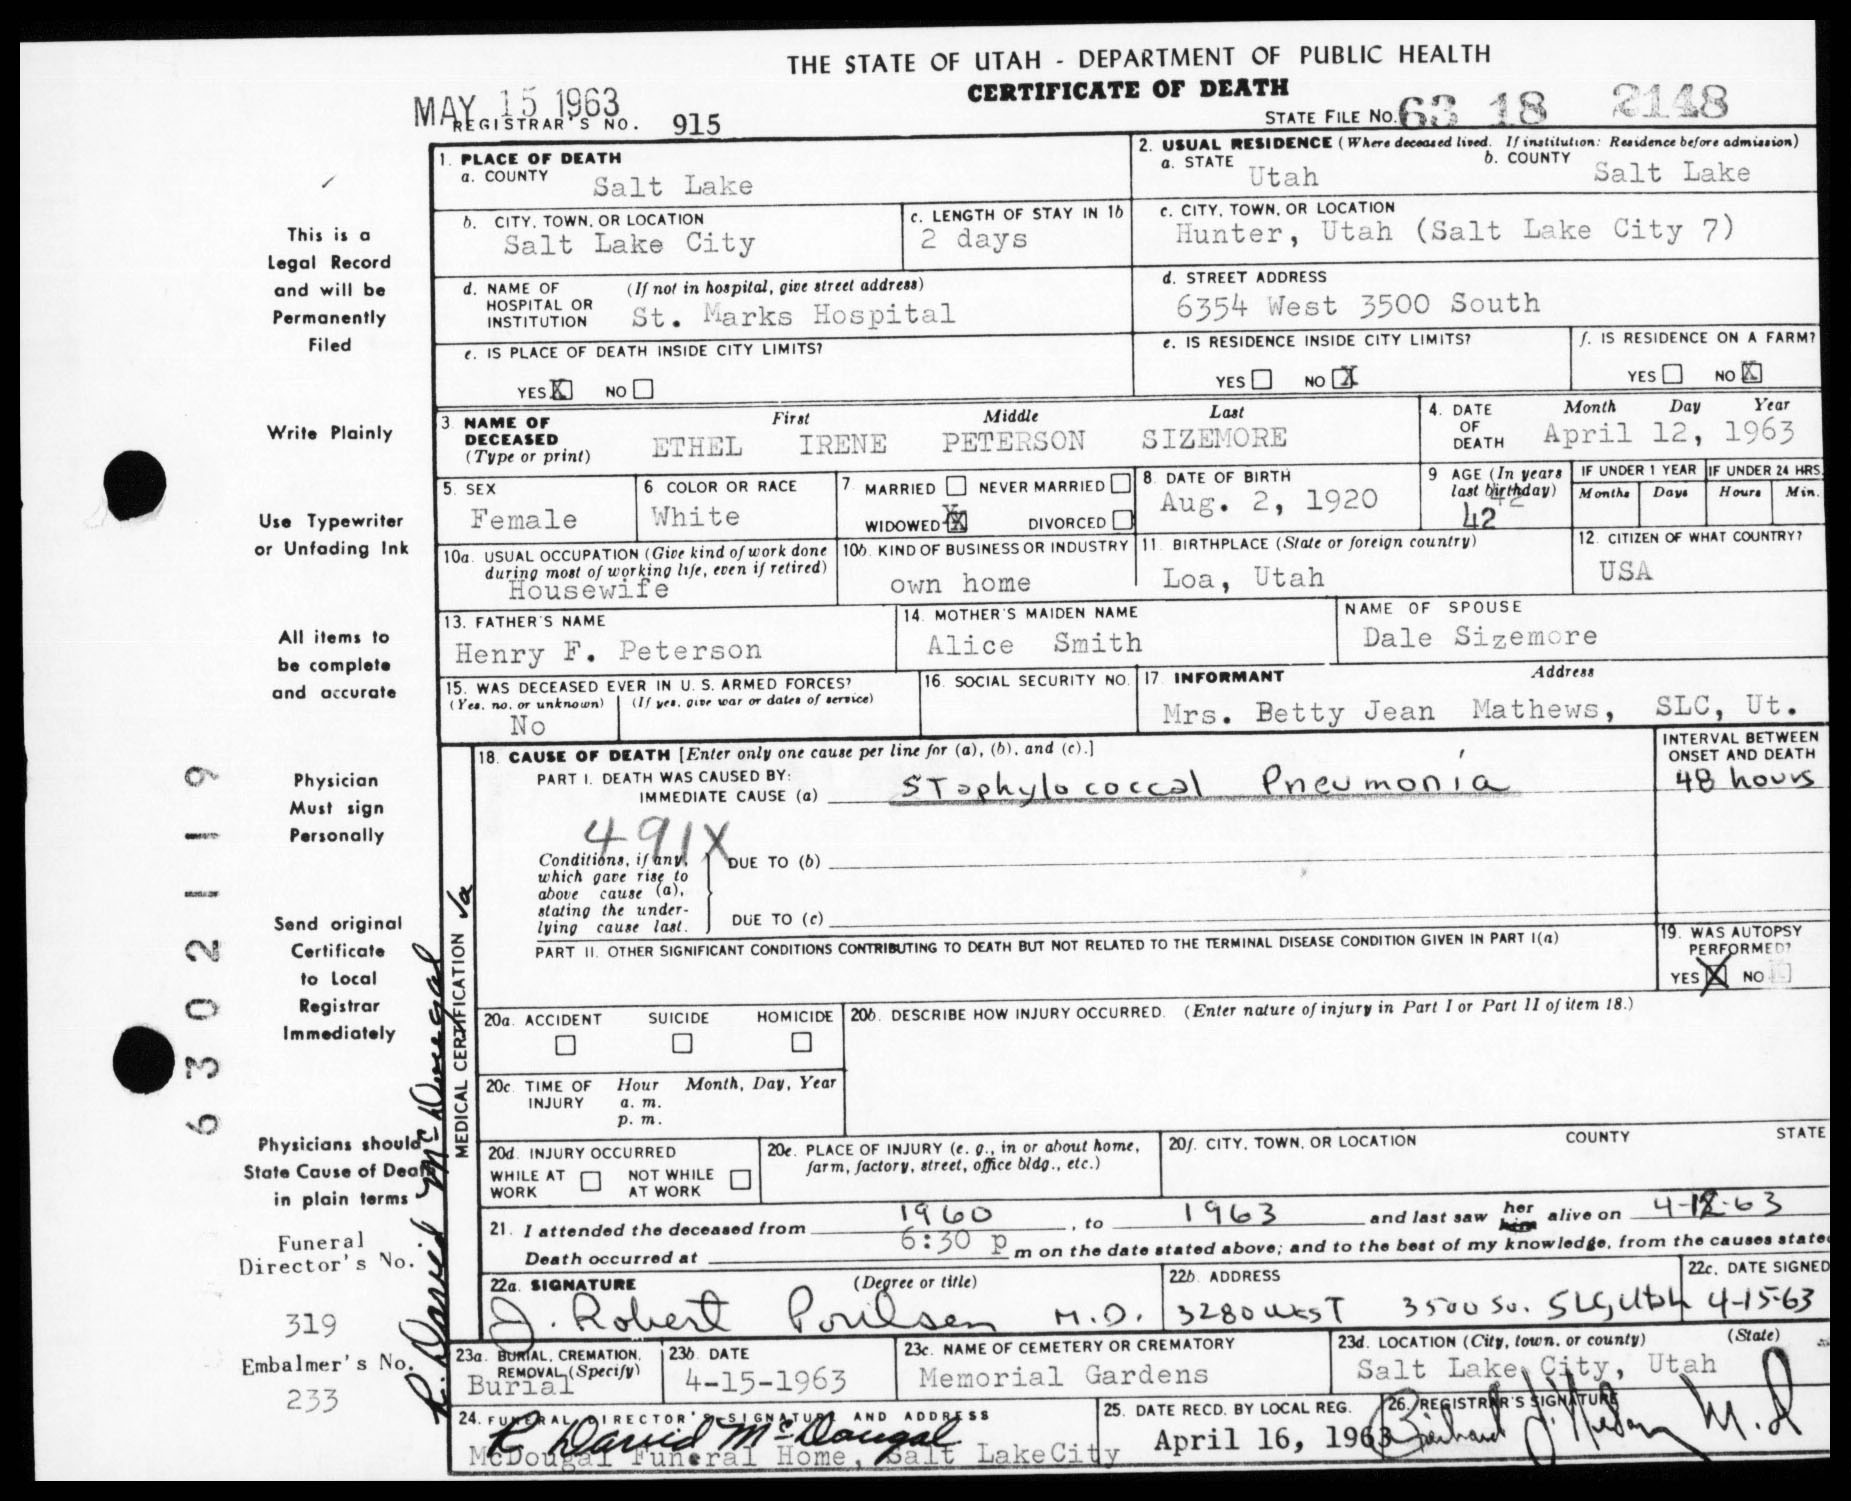 THE STATE OF UTAH - DEPARTMENT OF PUBLIC HEALTH
CERTIFICATE OF DEATH
MAY 15 1963
REGISTRAR'S NO. 915
STATE FILE NO. 63 18 2148
1. PLACE OF DEATH
a. COUNTY Salt Lake
2. USUAL RESIDENCE (Where deceased lived. If institution: Residence before admission)
a. STATE Utah b. COUNTY Salt Lake
b. CITY, TOWN, OR LOCATION
Salt Lake City
c. LENGTH OF STAY IN 1b
2 days
c. CITY, TOWN, OR LOCATION
Hunter, Utah (Salt Lake City 7)
d. NAME OF HOSPITAL OR INSTITUTION (If not in hospital, give street address)
St. Marks Hospital
d. STREET ADDRESS
6354 West 3500 South
e. IS PLACE OF DEATH INSIDE CITY LIMITS?
YES X NO
e. IS RESIDENCE INSIDE CITY LIMITS?
YES NO X
f. IS RESIDENCE ON A FARM?
YES NO X
3. NAME OF DECEASED (Type or print) First Middle Last
ETHEL IRENE PETERSON SIZEMORE
4. DATE OF DEATH Month Day Year
April 12, 1963
5. SEX
Female
6. COLOR OR RACE
White
7. MARRIED NEVER MARRIED
WIDOWED X DIVORCED
8. DATE OF BIRTH
Aug. 2, 1920
9 AGE (In years last birthday)
42
42
IF UNDER 1 YEAR IF UNDER 24 HRS.
Months Days Hours Min.
10a. USUAL OCCUPATION (Give kind of work done during most of working life, even if retired)
Housewife
10b. KIND OF BUSINESS OR INDUSTRY
own home
11. BIRTHPLACE (State or foreign country)
Loa, Utah
12. CITIZEN OF WHAT COUNTRY?
USA
13. FATHER'S NAME
Henry F. Peterson
14. MOTHER'S MAIDEN NAME
Alice Smith
NAME OF SPOUSE
Dale Sizemore
15. WAS DECEASED EVER IN U. S. ARMED FORCES?
(Yes, no, or unknown) (If yes, give war or dates of service)
No
16. SOCIAL SECURITY NO.
17. INFORMANT Address
Mrs. Betty Jean Mathews, SLC, Ut.
18. CAUSE OF DEATH [Enter only one cause per line for (a), (b), and (c).]
PART I. DEATH WAS CAUSED BY:
IMMEDIATE CAUSE (a) Staphylococcal Pneumonia
INTERVAL BETWEEN ONSET AND DEATH
48 hours
491X
Conditions, if any, which gave rise to above cause (a), stating the underlying cause last.
DUE TO (b)
DUE TO (c)
PART II. OTHER SIGNIFICANT CONDITIONS CONTRIBUTING TO DEATH BUT NOT RELATED TO THE TERMINAL DISEASE CONDITION GIVEN IN PART I(a)
19. WAS AUTOPSY PERFORMED?
YES X NO
20a. ACCIDENT SUICIDE HOMICIDE
20b. DESCRIBE HOW INJURY OCCURRED. (Enter nature of injury in Part I or Part II of item 18.)
20c. TIME OF INJURY Hour Month, Day, Year
a. m.
p. m.
20d. INJURY OCCURRED
WHILE AT WORK NOT WHILE AT WORK
20e. PLACE OF INJURY (e. g., in or about home, farm, factory, street, office bldg., etc.)
20f. CITY, TOWN, OR LOCATION COUNTY STATE
21. I attended the deceased from 1960, to 1963 and last saw her him alive on 4-12-63
Death occurred at 6:30 p m on the date stated above; and to the best of my knowledge, from the causes state
22a. SIGNATURE (Degree or title)
J. Robert Poulsen M.D.
22b. ADDRESS
3280 West 3500 So. SLC, Utah
22c. DATE SIGNED
4-15-63
23a. BURIAL, CREMATION, REMOVAL (Specify)
Burial
23b. DATE
4-15-1963
23c. NAME OF CEMETERY OR CREMATORY
Memorial Gardens
23d. LOCATION (City, town, or county) (State)
Salt Lake City, Utah
24. FUNERAL DIRECTOR'S SIGNATURE AND ADDRESS
R David McDougal
McDougal Funeral Home, Salt Lake City
25. DATE RECD. BY LOCAL REG.
April 16, 1963
26. REGISTRAR'S SIGNATURE
M.D
This is a
Legal Record
and will be
Permanently
Filed
Write Plainly
Use Typewriter
or Unfading Ink
All items to
be complete
and accurate
Physician
Must sign
Personally
Send original
Certificate
to Local
Registrar
Immediately
Physicians should
State Cause of Death
in plain terms
Funeral
Director's No.
319
Embalmer's No.
233
6302119
MEDICAL CERTIFICATION
R. David McDougal